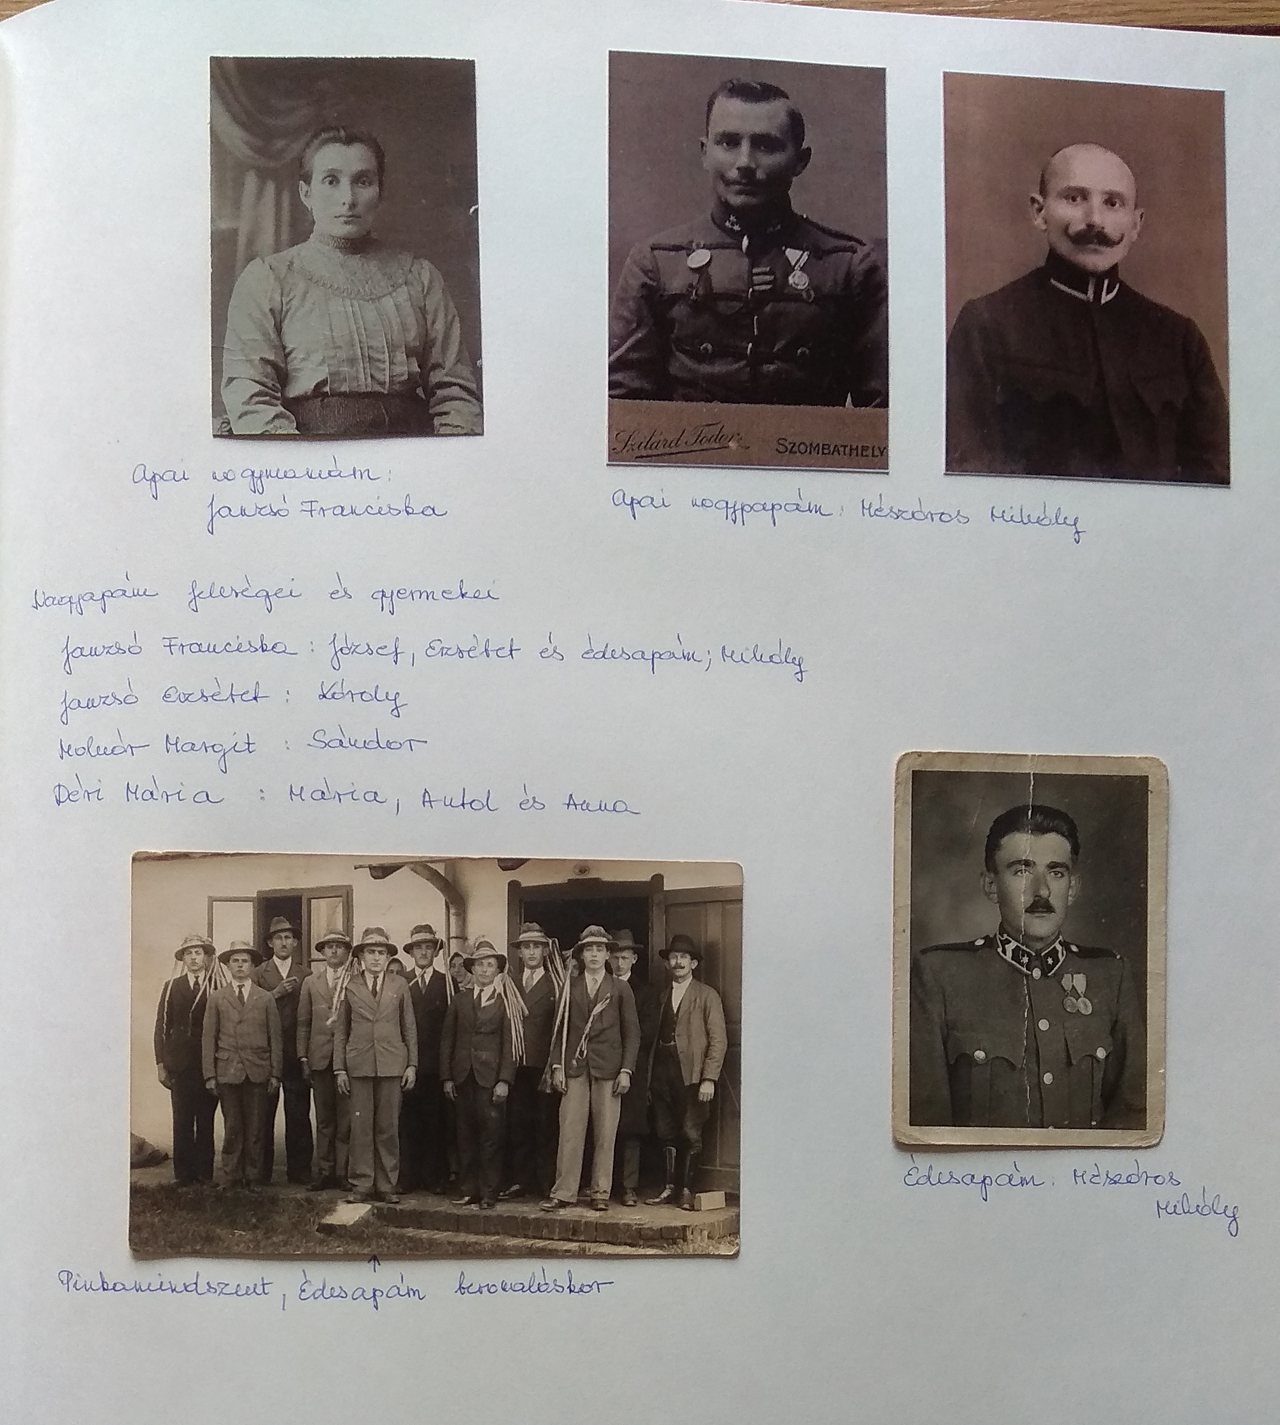 Szilárd Fodor SZOMBATHELY
Apai nagymamám:
Janzsó Franciska
Apai nagypapám: Mészáros Mihály
Nagyapám feleségei és gyermekei
Janzsó Franciska: József, Erzsébet és édesapám; Mihály
Janzsó Erzsébet: Károly
Molnár Margit: Sándor
Déri Mária: Mária, Antal és Anna
Édesapám: Mészáros
Mihály
Pinkamindszent, Édesapám bevonuláskor